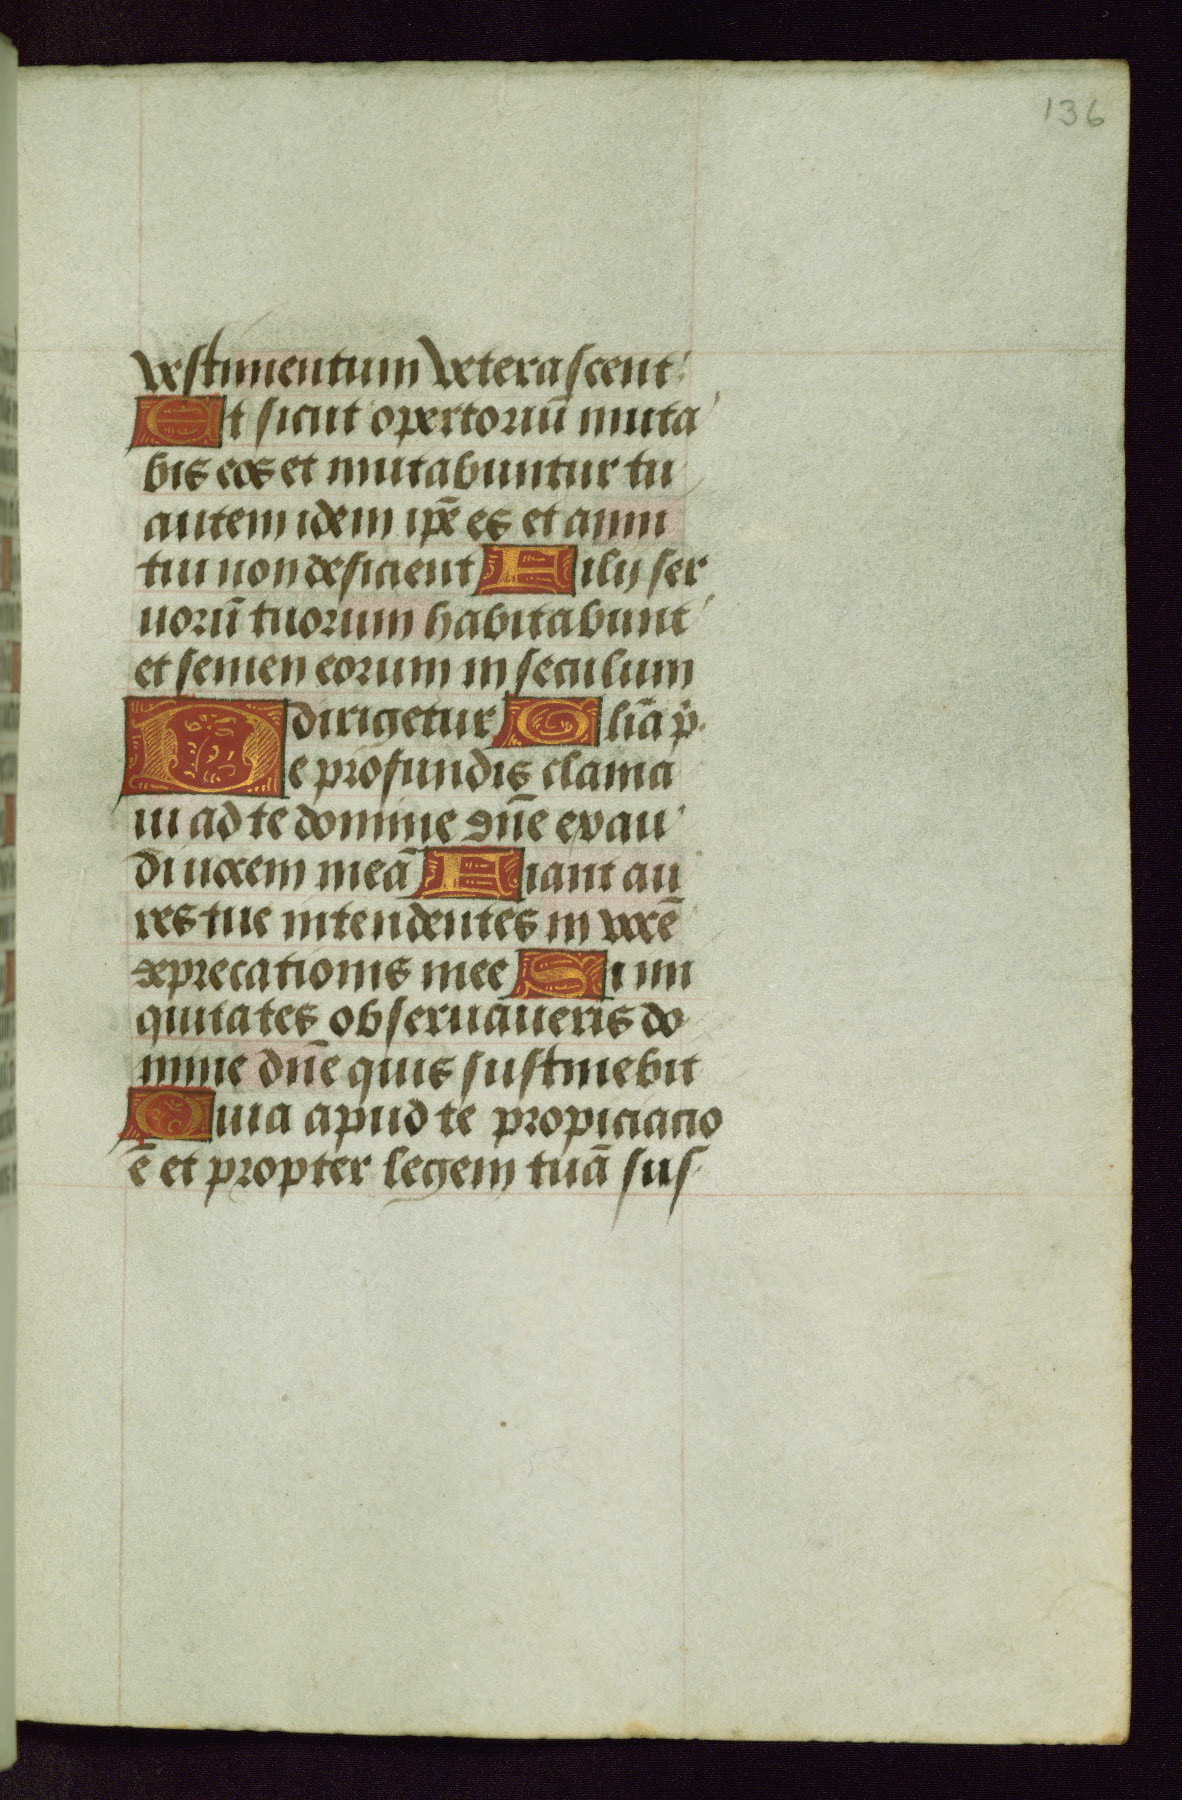 136
vestimentum veterascent
Et sicut opertoriū muta
bis eos et mutabuntur tu
autem idem ip̄e es et anni
tui non deficient Filij ser
uorū tuorum habitabunt
et semen eorum in seculum
dirigetur Gl̄ia p̄
De profundis clama
ui ad te domine dn̄e exau
di uocem meā Fiant au
res tue intendentes in vocē
deprecationis mee Si ini
quitates obseruaueris do
mine dn̄e quis sustinebit
Quia apud te propiciacio
ē et propter legem tuā sus